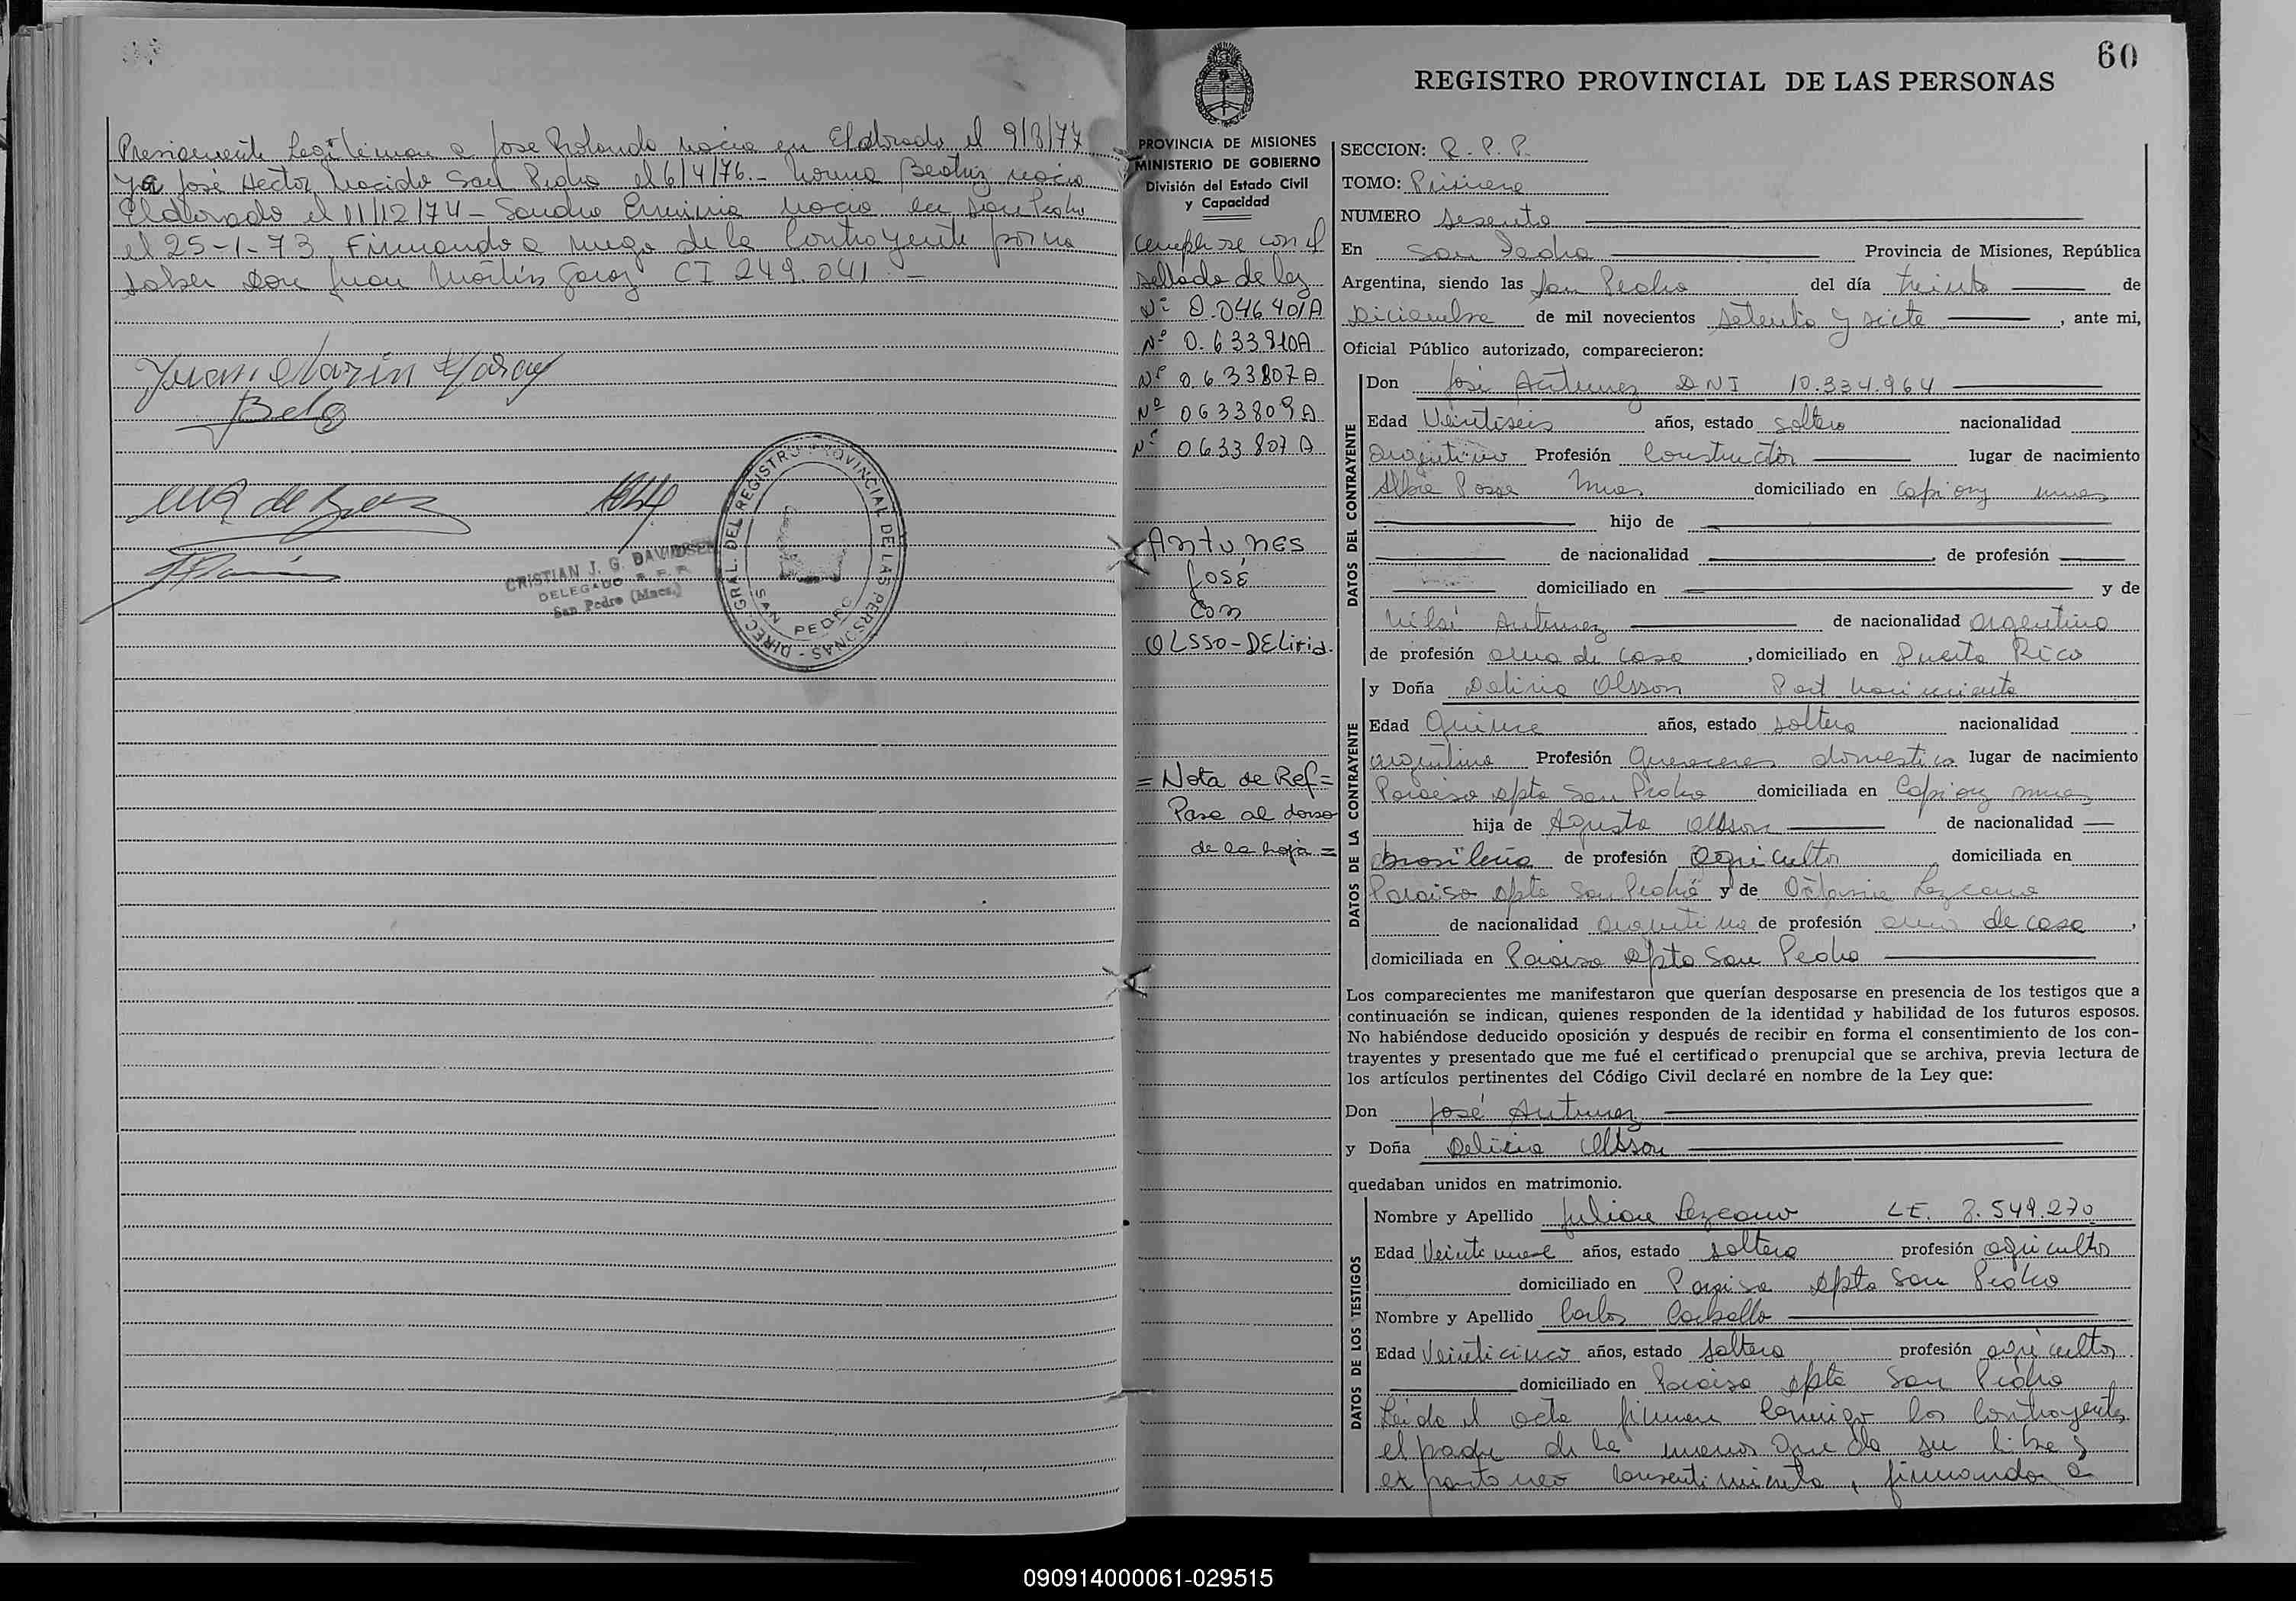 Legitiman a Jose Rolando nacio en Eldorado el 9/8/77
y a José Hector nacido San Pedro el 6/4/76.- Norma Beatriz nacio
Eldorado el 11/12/74 - Sandra Erminia nacio en San Pedro
el 25-1-73. Firmando a ruego de la Contrayente por no
saber Don Juan Martin Garay CI 249.041. -
Juan Marin Garay
CRISTIAN J. G. DAVIDSEN
DELEGADO R. P. P.
San Pedro (Mnes.)
DIREC. GRAL. DEL REGISTRO PROVINCIAL DE LAS PERSONAS -
SAN PEDRO
60
REGISTRO PROVINCIAL DE LAS PERSONAS
PROVINCIA DE MISIONES
MINISTERIO DE GOBIERNO
División del Estado Civil
y Capacidad
Cumplese con el
sellado de ley
Nº 0.046401A
Nº 0.633810A
Nº 0.633807A
Nº 0633809A
Nº 0633807A
Antunes
José
Con
OLSSO-DELiria.
= Nota de Ref =
Pase al dorso
de la hoja =
SECCION: R. P. P.
TOMO: Primero
NUMERO Sesenta
En San Pedro Provincia de Misiones, República
Argentina, siendo las San Pedro del día treinta de
Diciembre de mil novecientos setenta y siete, ante mi,
Oficial Público autorizado, comparecieron:
DATOS DEL CONTRAYENTE
Don José Antunez DNI 10.334.964
Edad Veintiseis años, estado soltero nacionalidad
argentino Profesión Constructor lugar de nacimiento
Alba Posse Mnes domiciliado en Capiovy mnes
hijo de
de nacionalidad , de profesión
domiciliado en y de
Antunez de nacionalidad argentina
de profesión ama de casa, domiciliado en Puerto Rico
DATOS DE LA CONTRAYENTE
y Doña Deliria Olsson Part nacimiento
Edad Quince años, estado soltera nacionalidad
argentina Profesión Quehaceres domestica lugar de nacimiento
Paraiso dpto San Pedro domiciliada en Capiovy mnes
hija de Agusto Olsson de nacionalidad
brasileña de profesión agricultor, domiciliada en
Paraiso dpto San Pedro y de Lezcano
de nacionalidad argentina de profesión ama de casa,
domiciliada en Paraiso dpto San Pedro
Los comparecientes me manifestaron que querían desposarse en presencia de los testigos que a
continuación se indican, quienes responden de la identidad y habilidad de los futuros esposos.
No habiéndose deducido oposición y después de recibir en forma el consentimiento de los con-
trayentes y presentado que me fué el certificado prenupcial que se archiva, previa lectura de
los artículos pertinentes del Código Civil declaré en nombre de la Ley que:
Don José Antunez
y Doña Deliria Olsson
quedaban unidos en matrimonio.
DATOS DE LOS TESTIGOS
Nombre y Apellido Julian Lezcano LE. 8.549.270
Edad Veinti nueve años, estado soltero profesión agricultor
domiciliado en Paraiso dpto San Pedro
Nombre y Apellido Carlos Carballo
Edad Veinticinco años, estado soltero profesión agricultor
domiciliado en Paraiso dpto San Pedro
Leida el acta firman conmigo los contrayentes
el padre de la menor que da su libre y
expontaneo consentimiento, firmando a
090914000061-029515